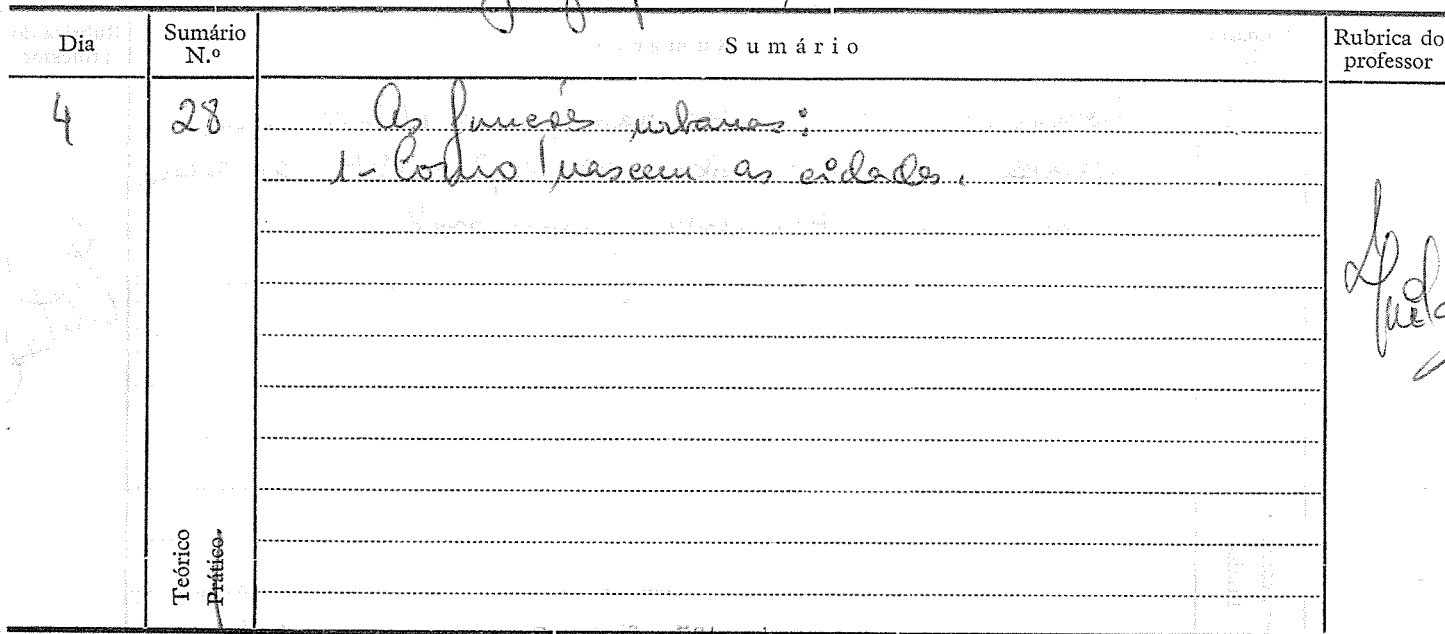 Dia
Sumário N.º
Sumário
Rubrica do professor
4
28
As funções urbanas:
1- Como nascem as cidades.
Teórico
Prático